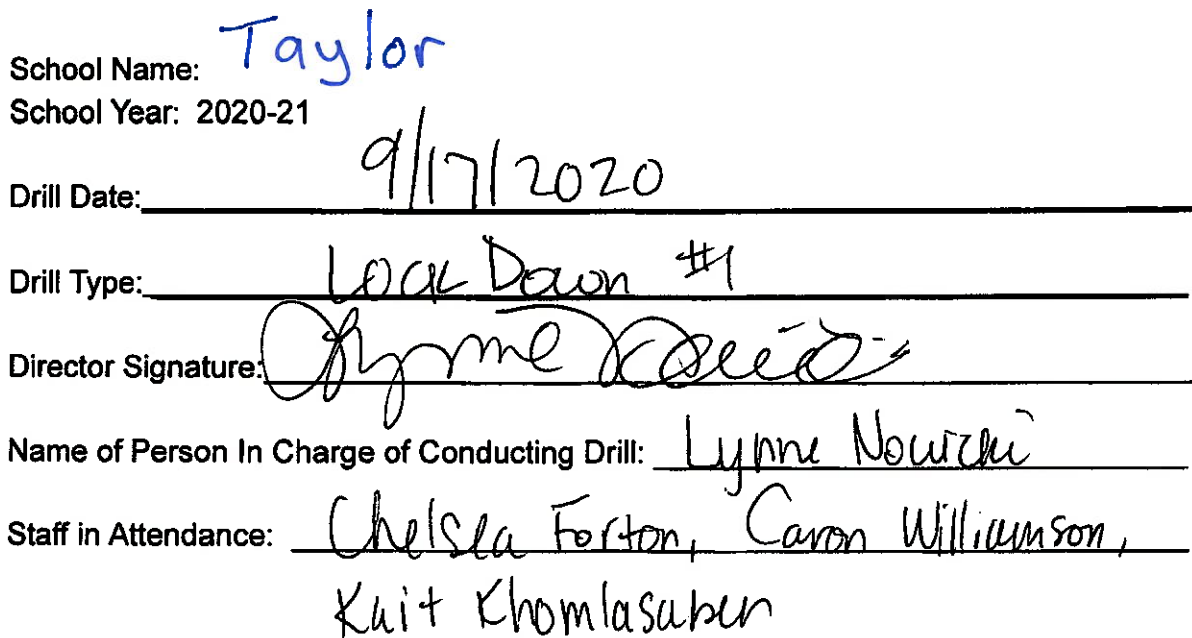 School Name: Taylor
School Year: 2020-21
Drill Date: 9/17/2020
Drill Type: Lock Down #1
Director Signature: Lynne
Name of Person In Charge of Conducting Drill: Lynne Nowicki
Staff in Attendance: Chelsea Forton, Caron Williamson,
Kait